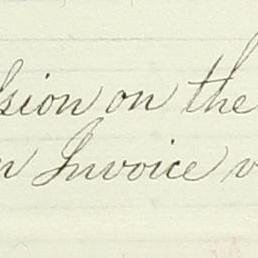 sion on the
n Invoice